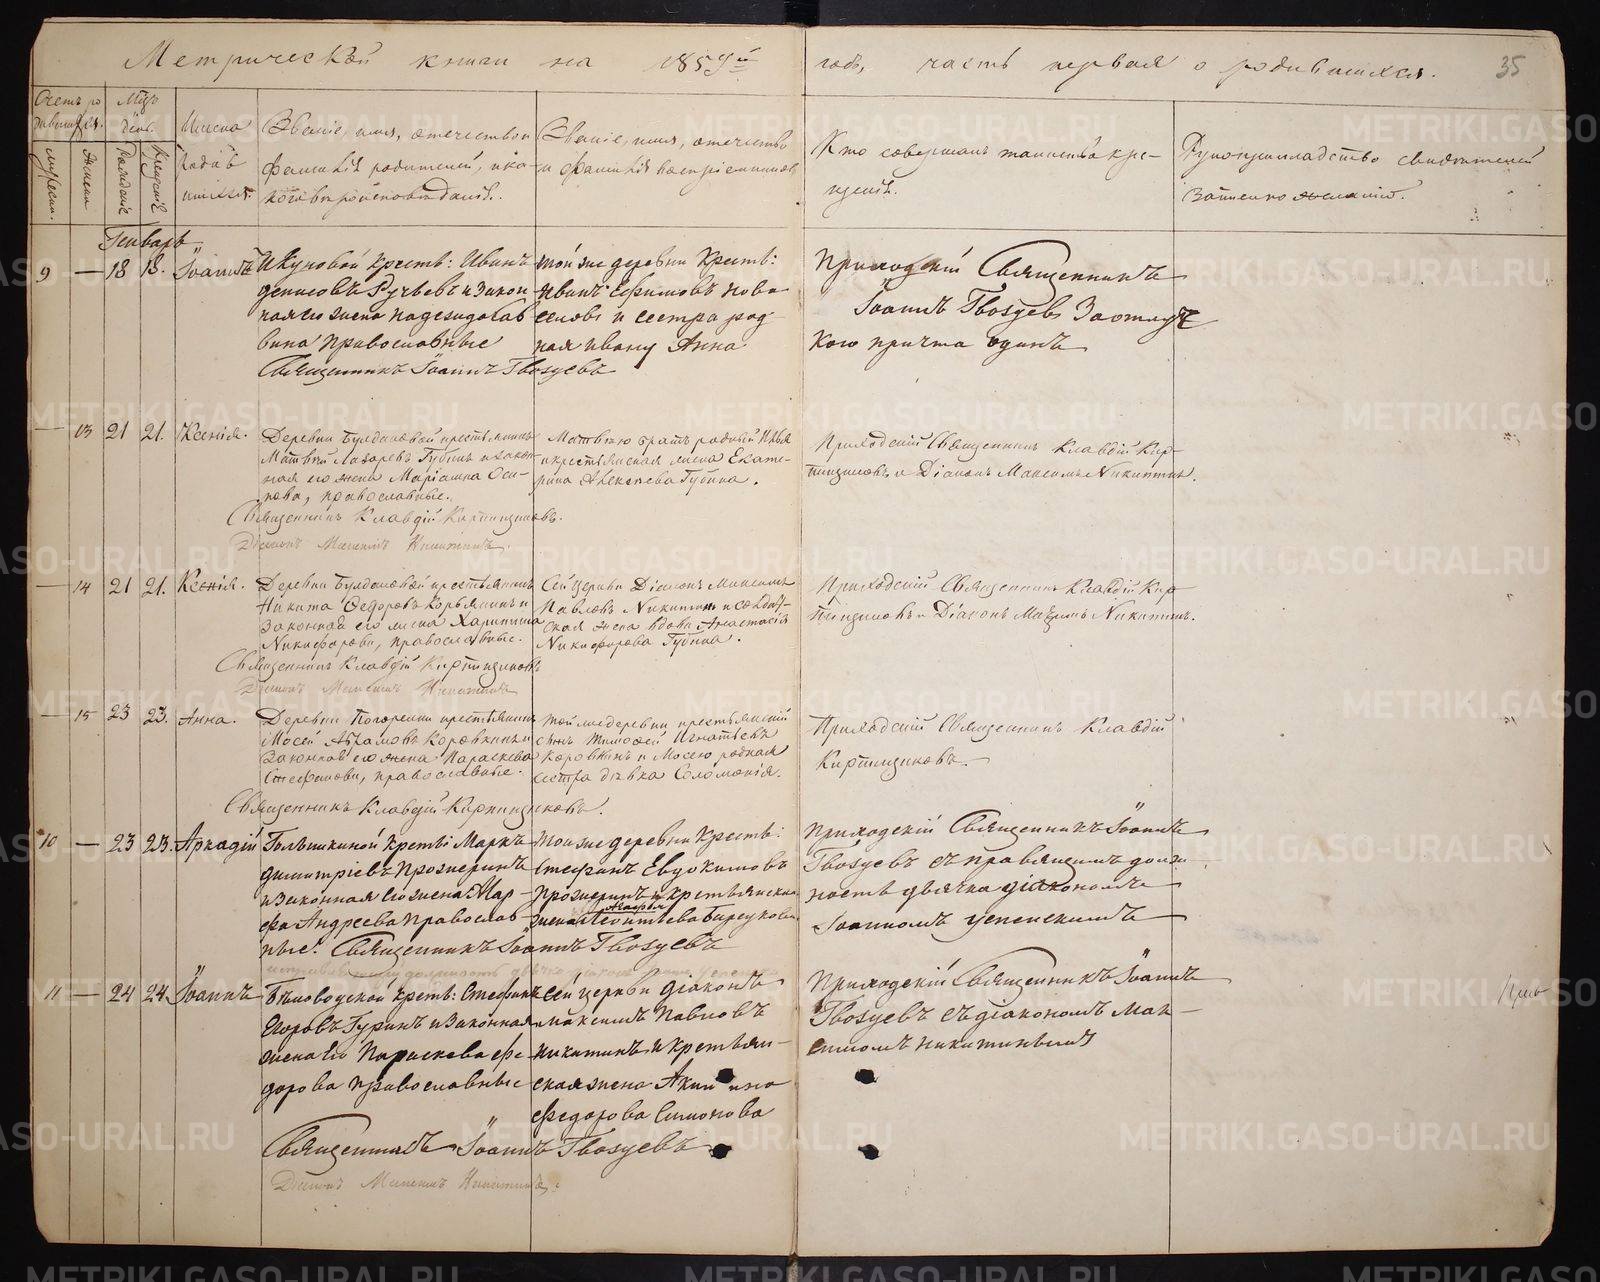 Метрической книги на 1859й годъ, часть первая о родившихся. 35
Счетъ ро
дившихся.
Мужеска.
Женска
Мѣц
день.
Рожденіе
Крещеніе
Имена
родив
шихся.
Званіе, имя, отечество и
фамилія родителей, и ка
кого вѣроисповѣданія.
Званіе, имя, отечество
и фамилія воспріемниковъ
Кто совершалъ таинство кре-
щенія.
Рукоприкладство свидѣтелей
записи по желанію.
Генварь
9 — 18 18. Іоаннъ
Икуковой кресть: Иванъ
денисовъ Ручьевъ и закон
ная его жена Надежда Сав
вина Православные
Священникъ Іоаннъ Гвоздевъ
той же деревни Кресть:
Иванъ Ефимовъ Ново
селовъ и сестра род
ная ивану Анна
Приходскій Священникъ
Іоаннъ Гвоздевъ За
кого причта одинъ
— 13 21 21. Ксенія.
Деревни Булдаковой крестьянинъ
Матвѣй Лазаревъ Губинъ и закон
ная его жена Маріамна Оси-
пова, православные.
Священникъ Клавдій Кирпищиковъ.
Діаконъ Максимъ Никитинъ.
Матвѣю братъ родный Илья
и крестьянская жена Екате-
рина Алексѣева Губина.
Приходскій Священникъ Клавдій Кир-
пищиковъ и Діаконъ Максимъ Никитинъ.
— 14 21 21. Ксенія.
Деревни Булдаковой крестьянинъ
Никита Ѳедоровъ и
законная его жена Харитина
Никифорова, православные.
Священникъ Клавдій Кирпищиковъ
Діаконъ Максимъ Никитинъ
Сей Церкви Діаконъ Максимъ
Павловъ Никитинъ и солдат-
ская жена вдова Анастасія
Никифорова Губина.
Приходскій Священникъ Клавдій Кир
пищиковъ и Діаконъ Максимъ Никитинъ.
— 15 23 23. Анна.
Деревни крестьянинъ
Мосей Абрамовъ Коровкинъ и
законная его жена Параскева
Стефанова, православные.
Священникъ Клавдій Кирпищиковъ.
Той же деревни крестьянскій
сынъ Тимофей Игнатьевъ
Коровкинъ и Мосею родная
сестра дѣвка Соломонія.
Приходскій Священникъ Клавдій
Кирпищиковъ.
10 — 23 23. Аркадій
Голышкиной кресть: Маркъ
димитріевъ Прожеринъ
и законная его жена Мар-
фа Андреева Православ-
ные. Священникъ Іоаннъ Гвоздевъ
Той же деревни Кресть:
Стефанъ Евдокимовъ
Прожеринъ и крестьянская
жена Агафья Леонтьева
Приходскій Священникъ Іоаннъ
Гвоздевъ съ правящимъ долж
ность дьячка діакономъ
Іоанномъ успенскимъ
11 — 24 24. Іоаннъ
Бѣловодской кресть: Стефанъ
Егоровъ Гуринъ и законная
жена его Параскева фе-
дорова православные
Священникъ Іоаннъ Гвоздевъ
Діаконъ Максимъ Никитинъ.
Сей церкви діаконъ
максимъ Павловъ
никитинъ и крестьян-
ская жена
федорова Симонова
Приходскій Священникъ Іоаннъ
Гвоздевъ съ діакономъ Мак-
симомъ никитинымъ
METRIKI.GASO-URAL.RU